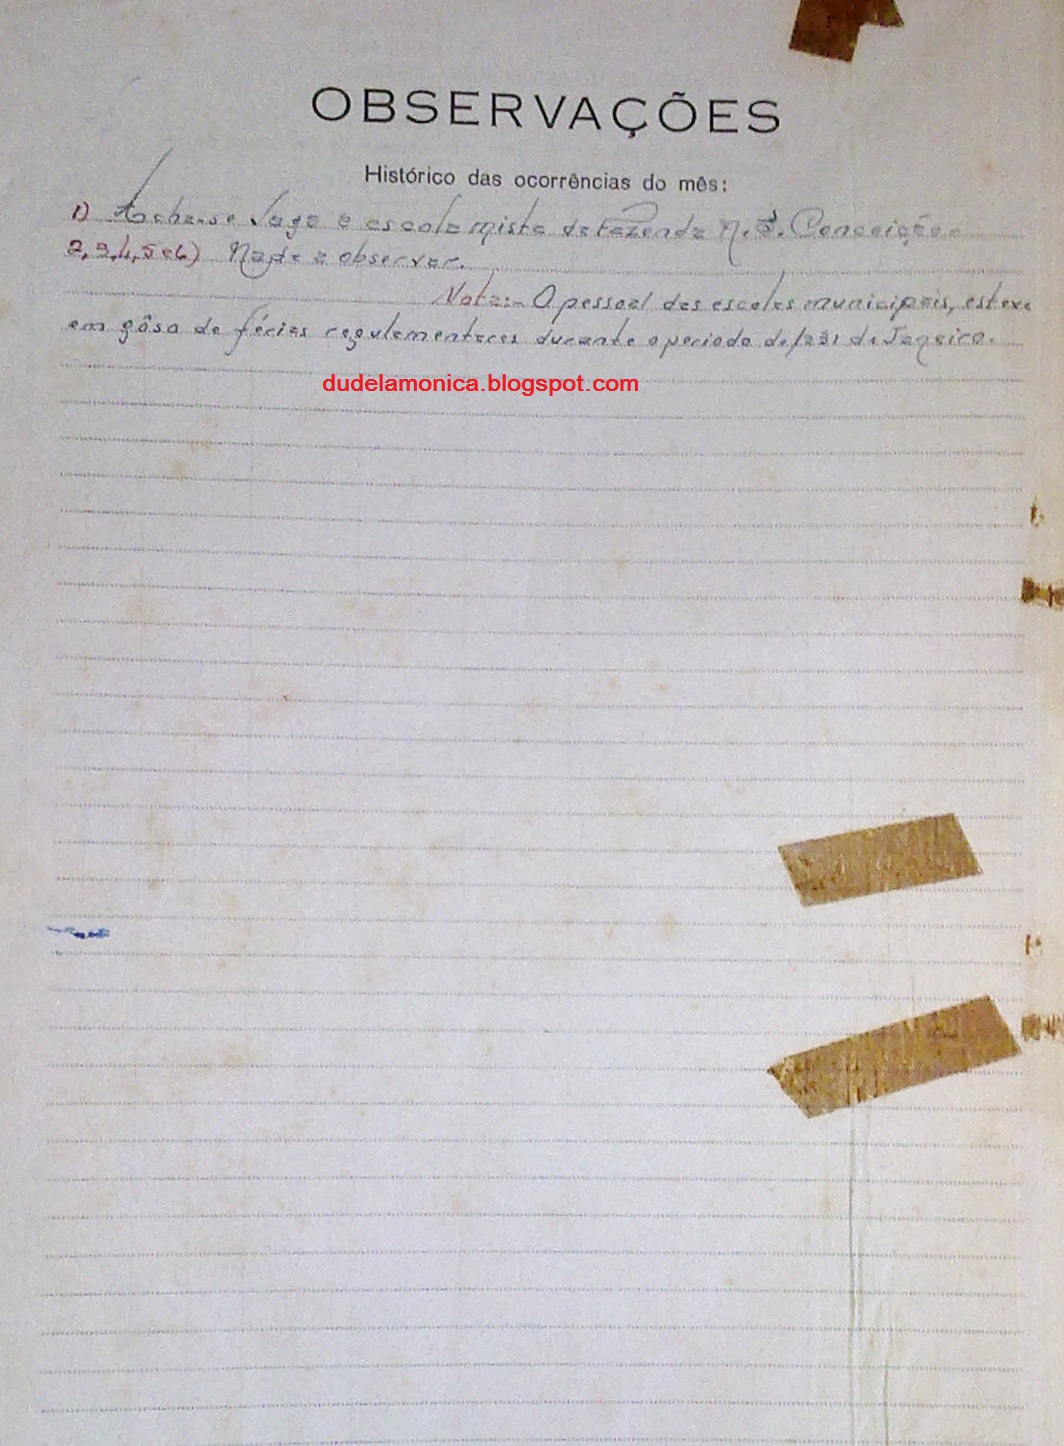 OBSERVAÇÕES
Histórico das ocorrências do mês:
1) Acha-se vaga a escola mista da Fazenda N. S. Conceição.
2, 3, 4, 5 e 6) Nada a observar.
Nota:- O pessoal das escolas municipais, esteve
em gôso de férias regulamentares durante o periodo de 1 a 31 de Janeiro.
dudelamonica.blogspot.com